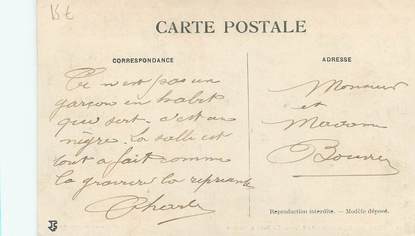 15 €
CARTE POSTALE
CORRESPONDANCE
Ce n'est pas un
garçon en habit
qui sert. c'est un
nègre. La salle est
tout a fait comme
la gravure la represente
Charles
ADRESSE
Monsieur
et
Madame
Reproduction interdite. — Modèle déposé.